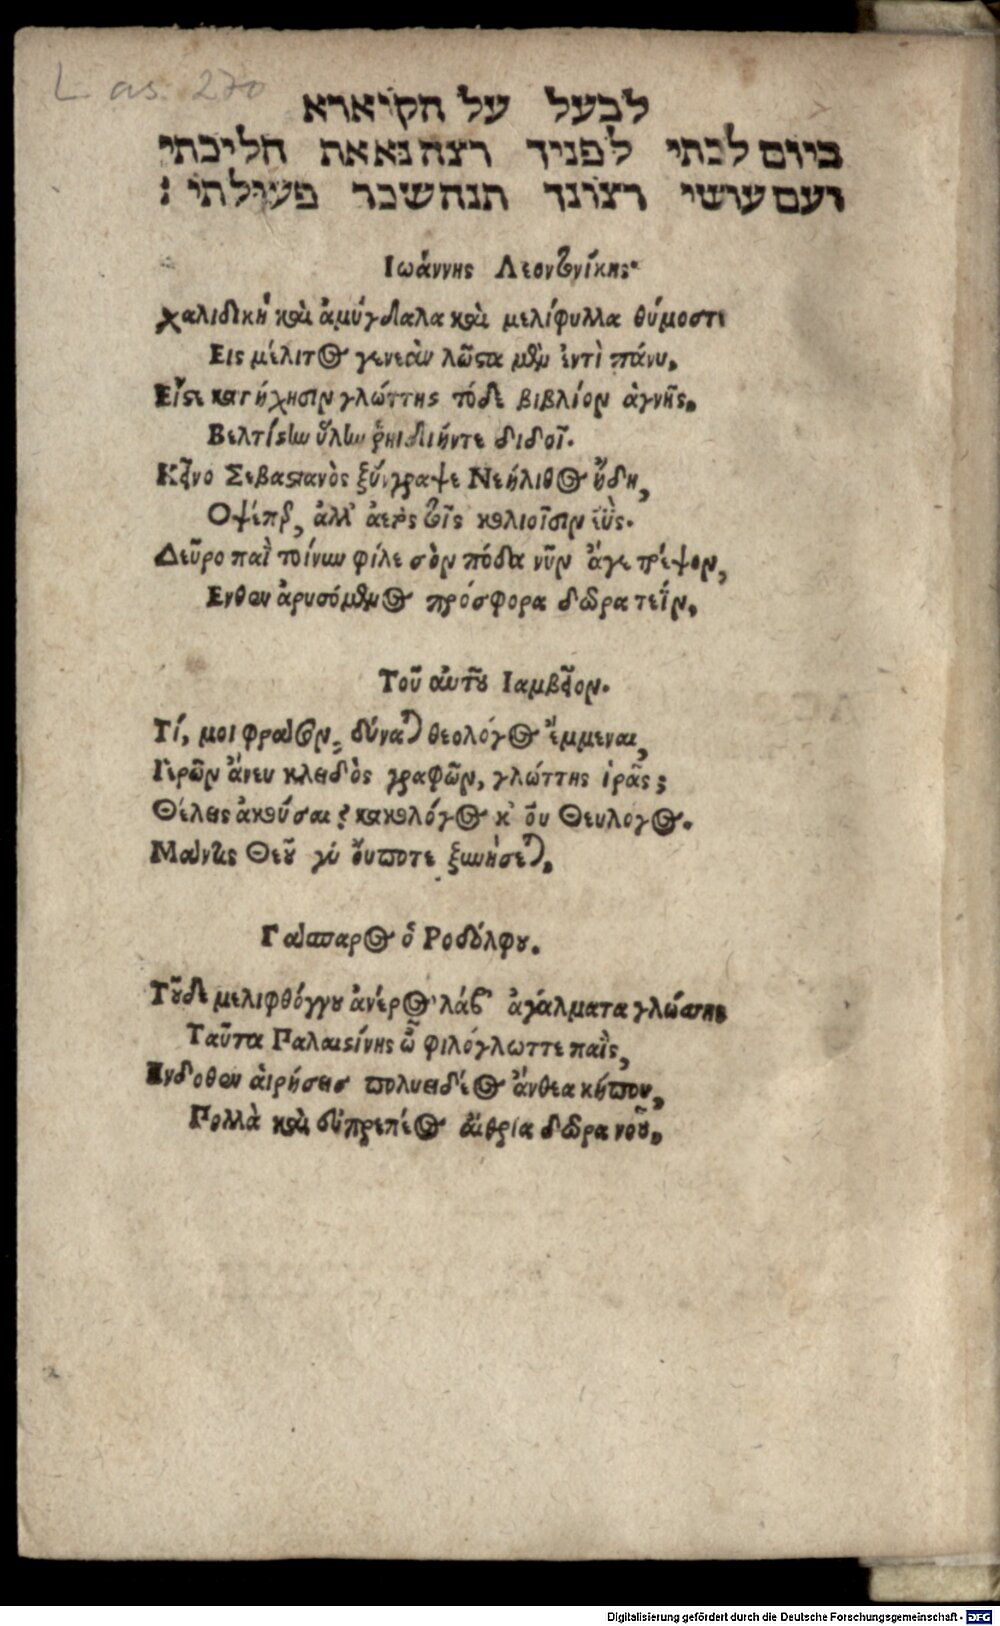 L as. 270
לבעל על הקיארא
ביום לכתי לפניך רצה נא את הליכתי
ועם עושי רצונך תנה שכר פעולתי :
Ιωάννης Λεοντονίκης·
χαλιδικὴ καὶ ἀμύγδαλα καὶ μελίφυλλα θύμοστε
Εις μέλιτος γενεὰν λῶστα μὲν ἐντὶ πάνυ,
Εἴστε κατήχησιν γλώττης τόδε βιβλίον ἁγνῆς,
Βελτίστω ὕλω ῥηιδιήντε διδοῖ.
Κεῖνο Σεβαστανὸς ξύγγραψε Νεήλιθος ἤδη,
Οψέπερ, ἀλλ' τοῖς
Δεῦρο παῖ τοίνων φίλε σὸν πόδα νῦν ἄγε τρέψον,
Ενθεν ἀρυσόμενος πρόσφορα δῶρα τεΐν,
Τοῦ αὐτοῦ Ιαμβεῖον.
Τί, μοι φράσον, δύναται θεολόγος ἔμμεναι,
Γερῶν ἄνευ κλειδὸς γραφῶν, γλώττης ἱρᾶς;
Θέλεις ἀκοῦσαι? κακολόγος κ' οὐ Θευλογος.
Μάντις Θεοῦ γὰ οὔποτε ξυνήσεται,
Γάσπαρος ὁ Ροδόλφου.
Τοῦδε μελιφθόγγου ἀνέρος λάβ' ἀγάλματα γλώσσης
Ταῦτα Παλαιστίνης ὦ φιλόγλωττε παῖς,
Ενδοθεν αἱρήσεις πολυειδέος ἄνθεα κήπου,
Πολλὰ καὶ εὐπρεπέος αἴθρια δῶρα νοῦ,
Digitalisierung gefördert durch die Deutsche Forschungsgemeinschaft - DFG